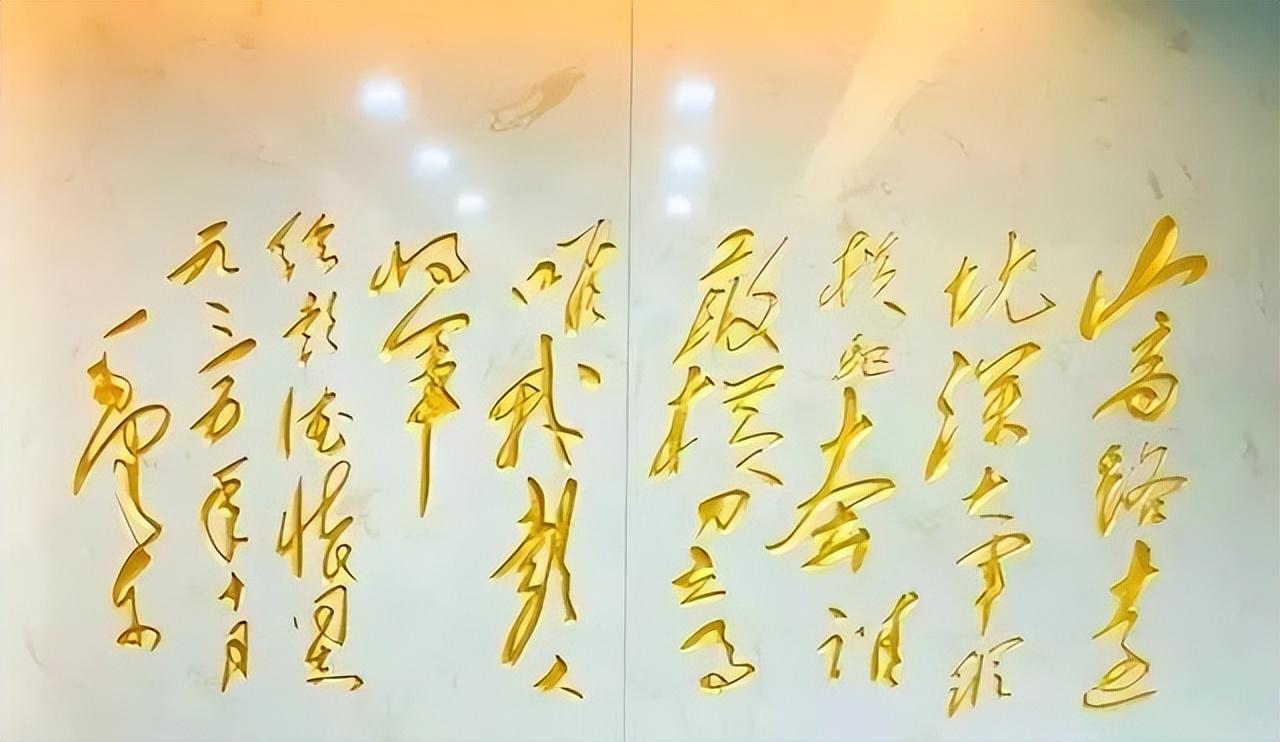 山高路远
坑深大军纵
横驰奔谁
敢横刀立马
唯我彭大
将军
给彭德怀同志
一九三五年十月
毛泽东